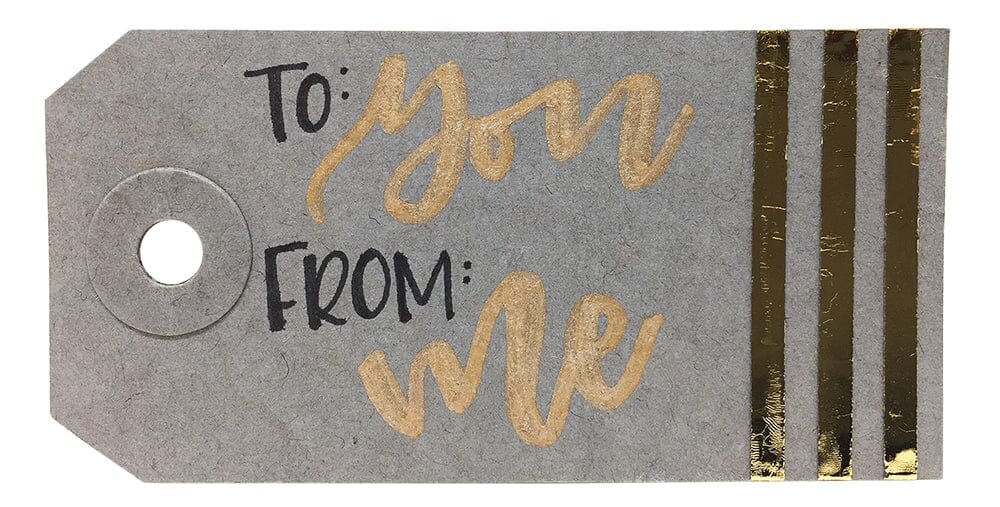 TO: you
FROM: me